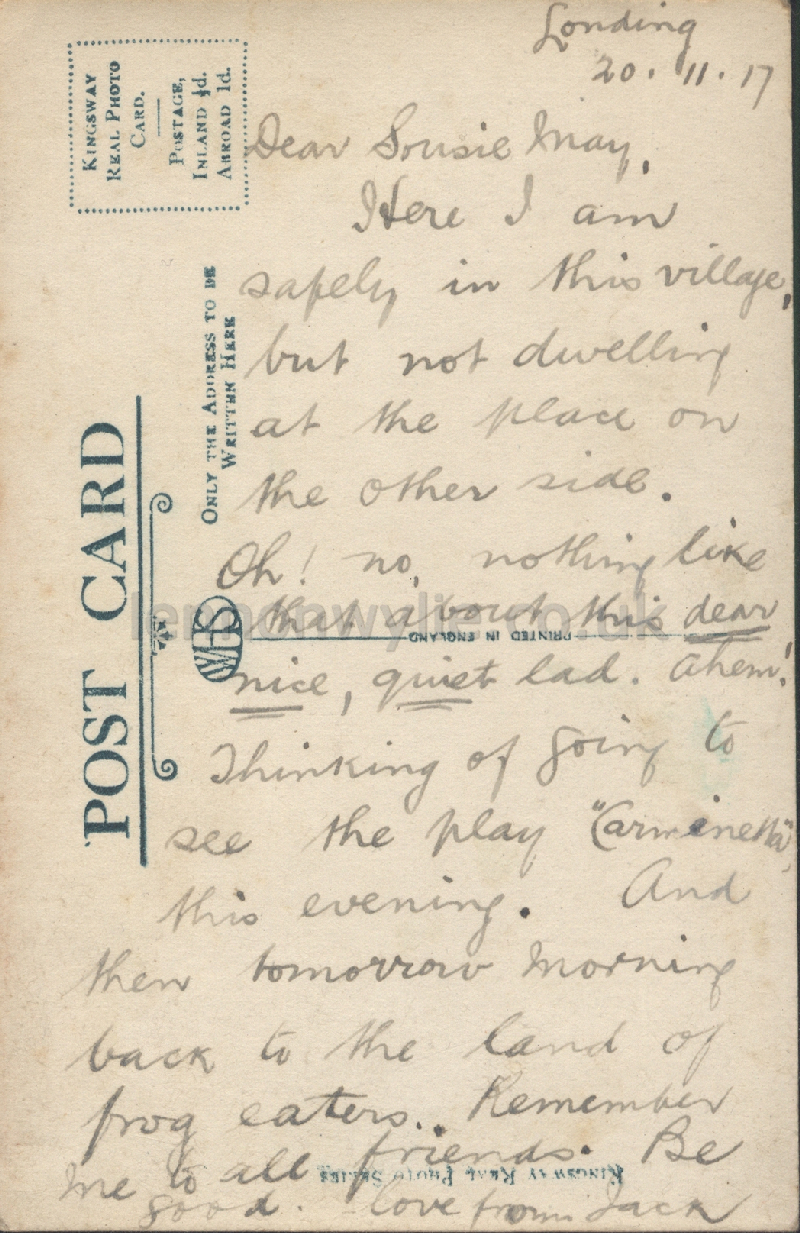 Londing
20.11.17
Dear Sousie May,
Here I am
safely in this village,
but not dwelling
at the place on
the other side.
Oh! no, nothing like
that about this dear
nice, quiet lad. Ahem!
Thinking of going to
see the play "Carminetta",
this evening. And
then tomorrow morning
back to the land of
frog eaters.. Remember
me to all friends. Be
good. love from Jack
KINGSWAY
REAL PHOTO
CARD.
POSTAGE,
INLAND ½d.
ABROAD 1d.
ONLY THE ADDRESS TO BE
WRITTEN HERE
POST CARD
WHS
PRINTED IN ENGLAND
KINGSWAY REAL PHOTO SERIES
lennonwylie.co.uk